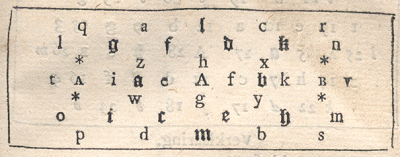 q a l c r
l g f d k n
* z h x *
t A i a e A f h k B v
* w g y *
o i c e h m
p d m b s